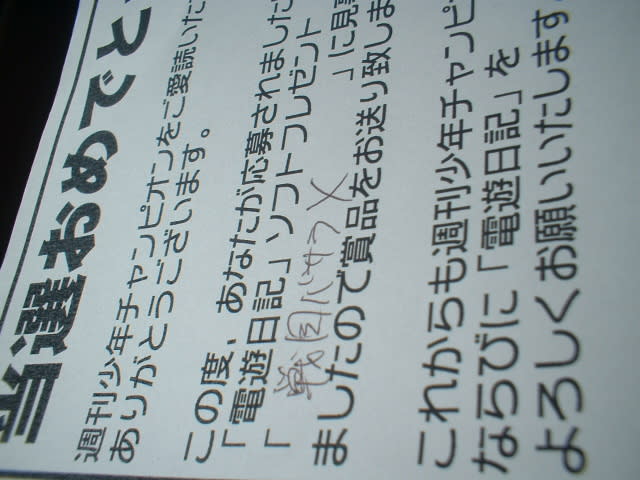 当選おめでと
週刊少年チャンピオンをご愛読いた
ありがとうございます。
この度、あなたが応募されました
「電遊日記」ソフトプレゼント
「戦国バサラX」に見事
ましたので賞品をお送り致しま
これからも週刊少年チャンピ
ならびに「電遊日記」を
よろしくお願いいたします。